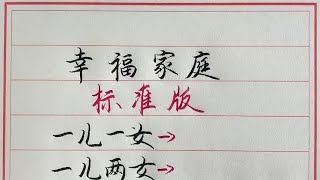 幸福家庭
标准版
一儿一女→
一儿两女→